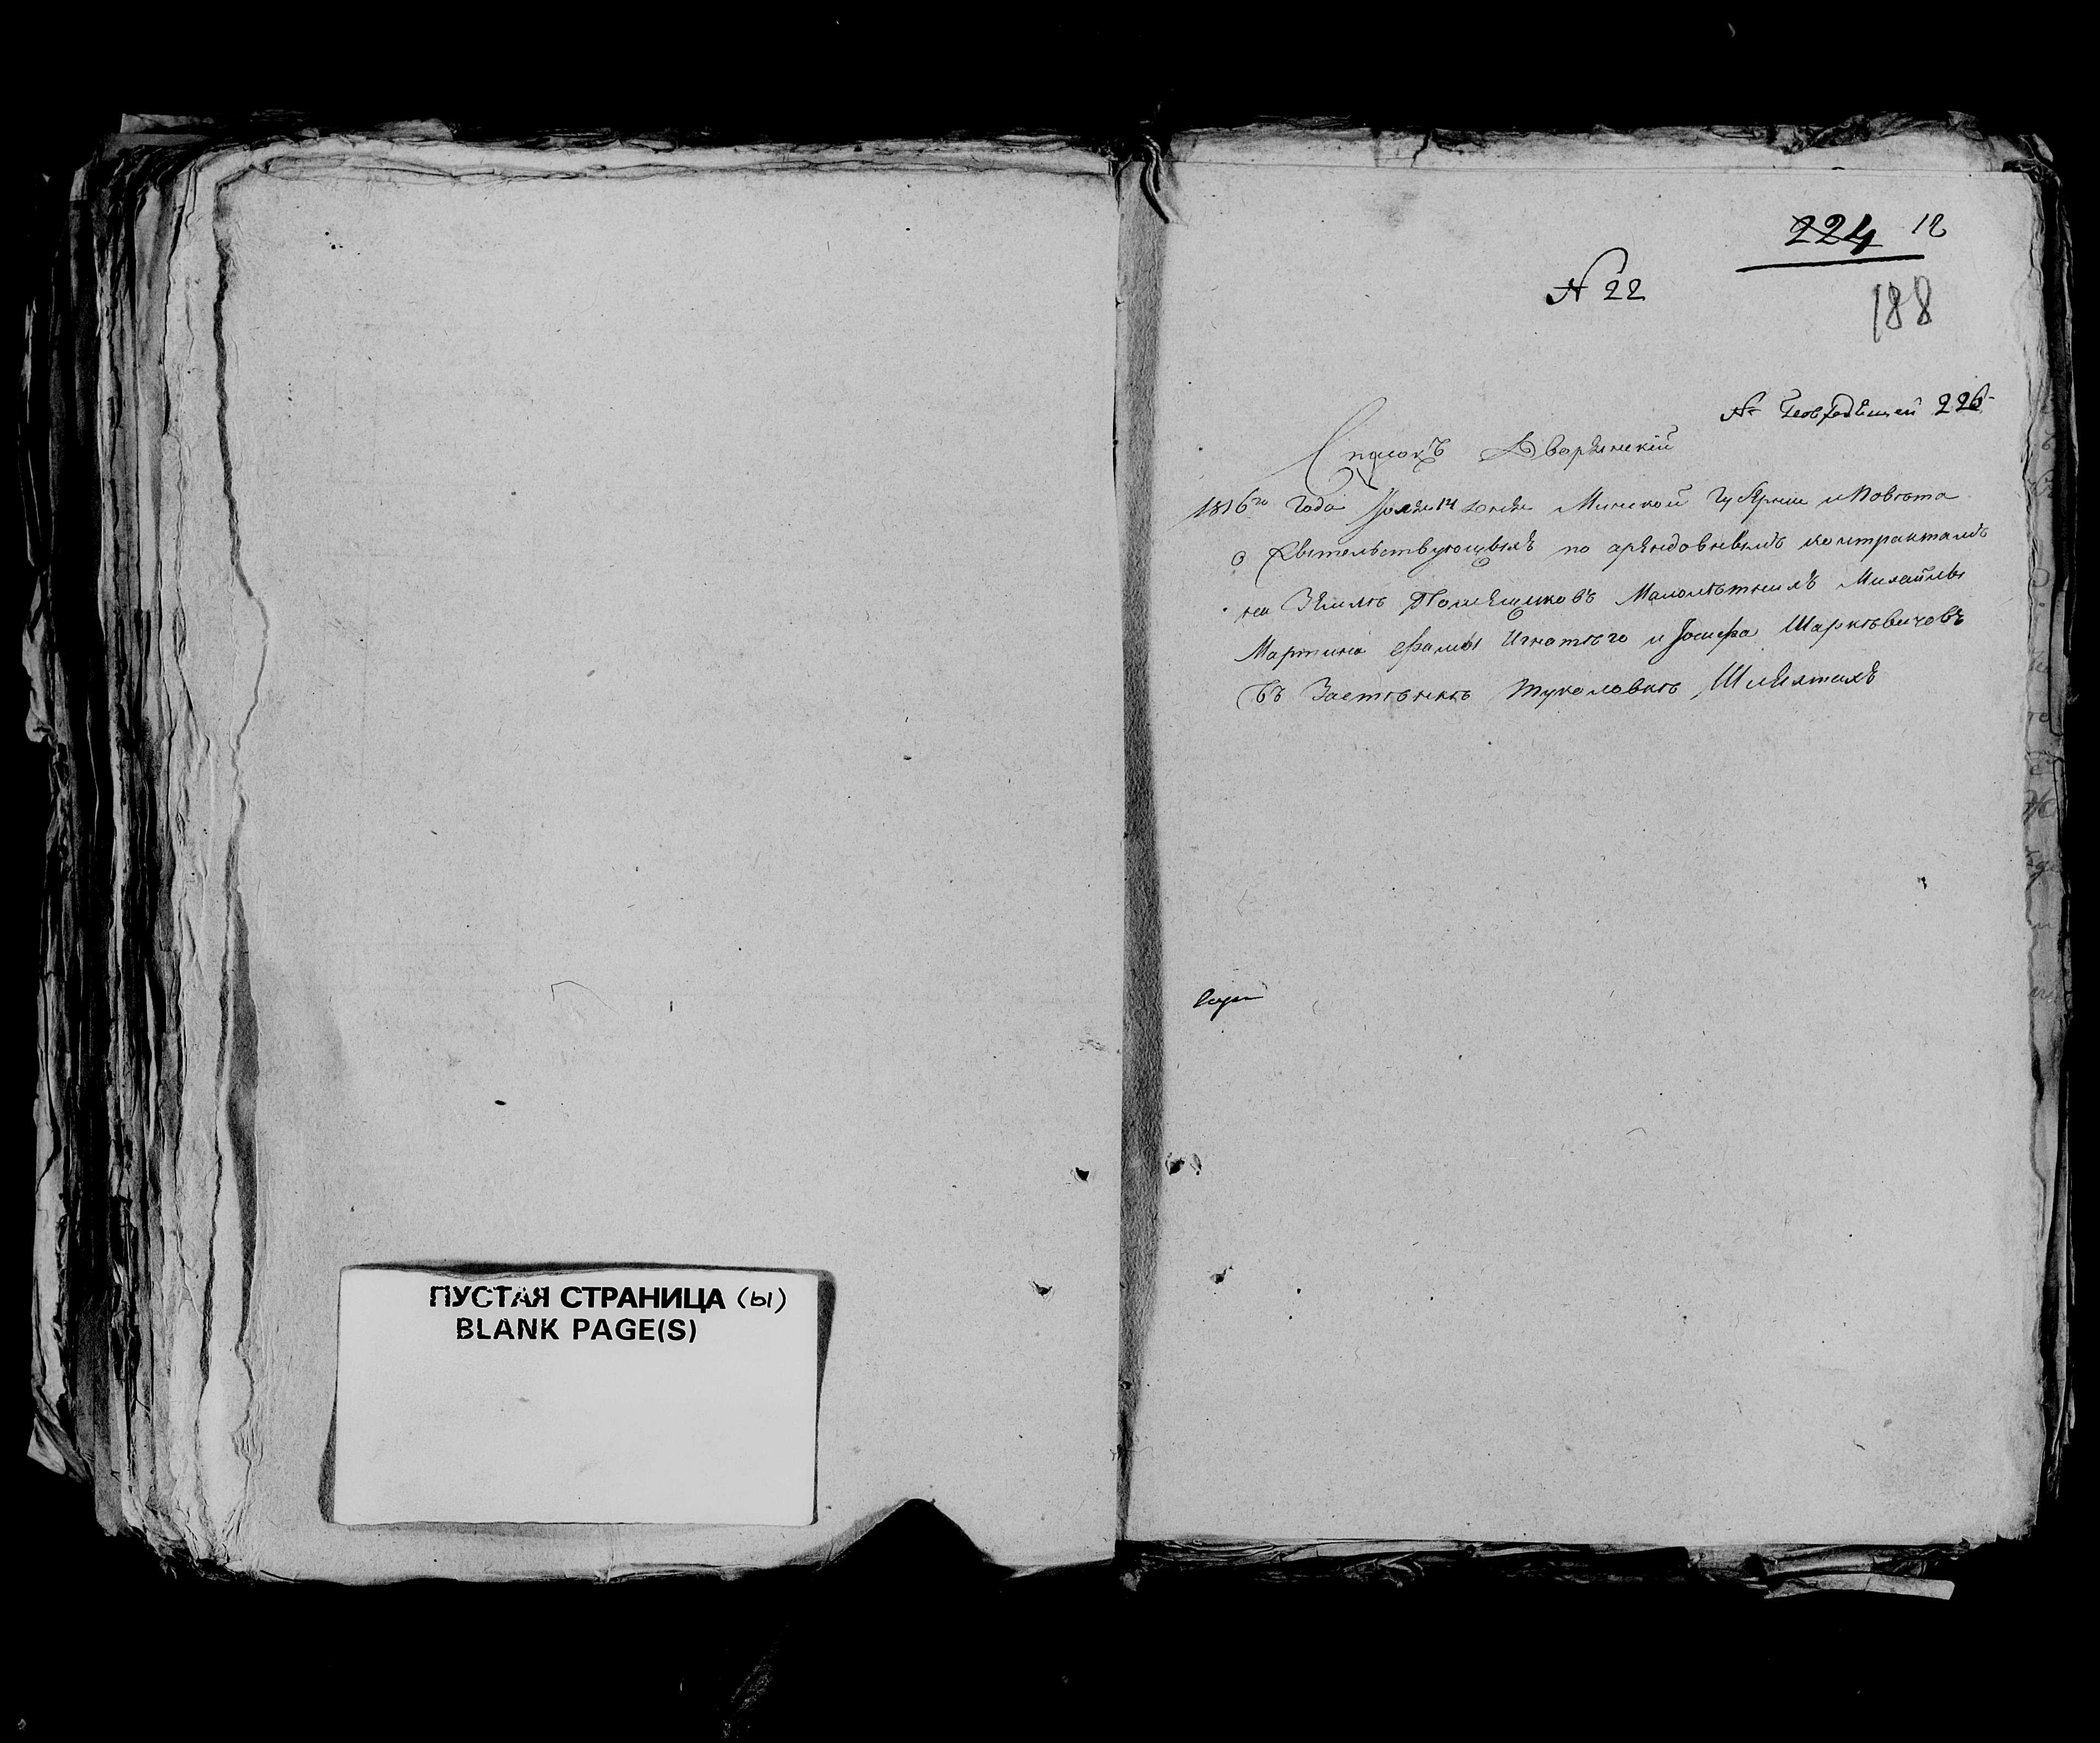 ПУСТАЯ СТРАНИЦА (ы)
BLANK PAGE(S)
224 12
№ 22
188
№ 226
Списокъ Дворянский
1816го Года Июля 14 дня Минской Губернии и Повѣта
о жвительствующихъ по арендовнымъ контрактамъ
на Землѣ Помещиковъ Малолѣтнихъ Михайлы
Мартина Фомы Игнатѣго и Иосифа Шаркѣвичовъ
Въ Застѣнкѣ